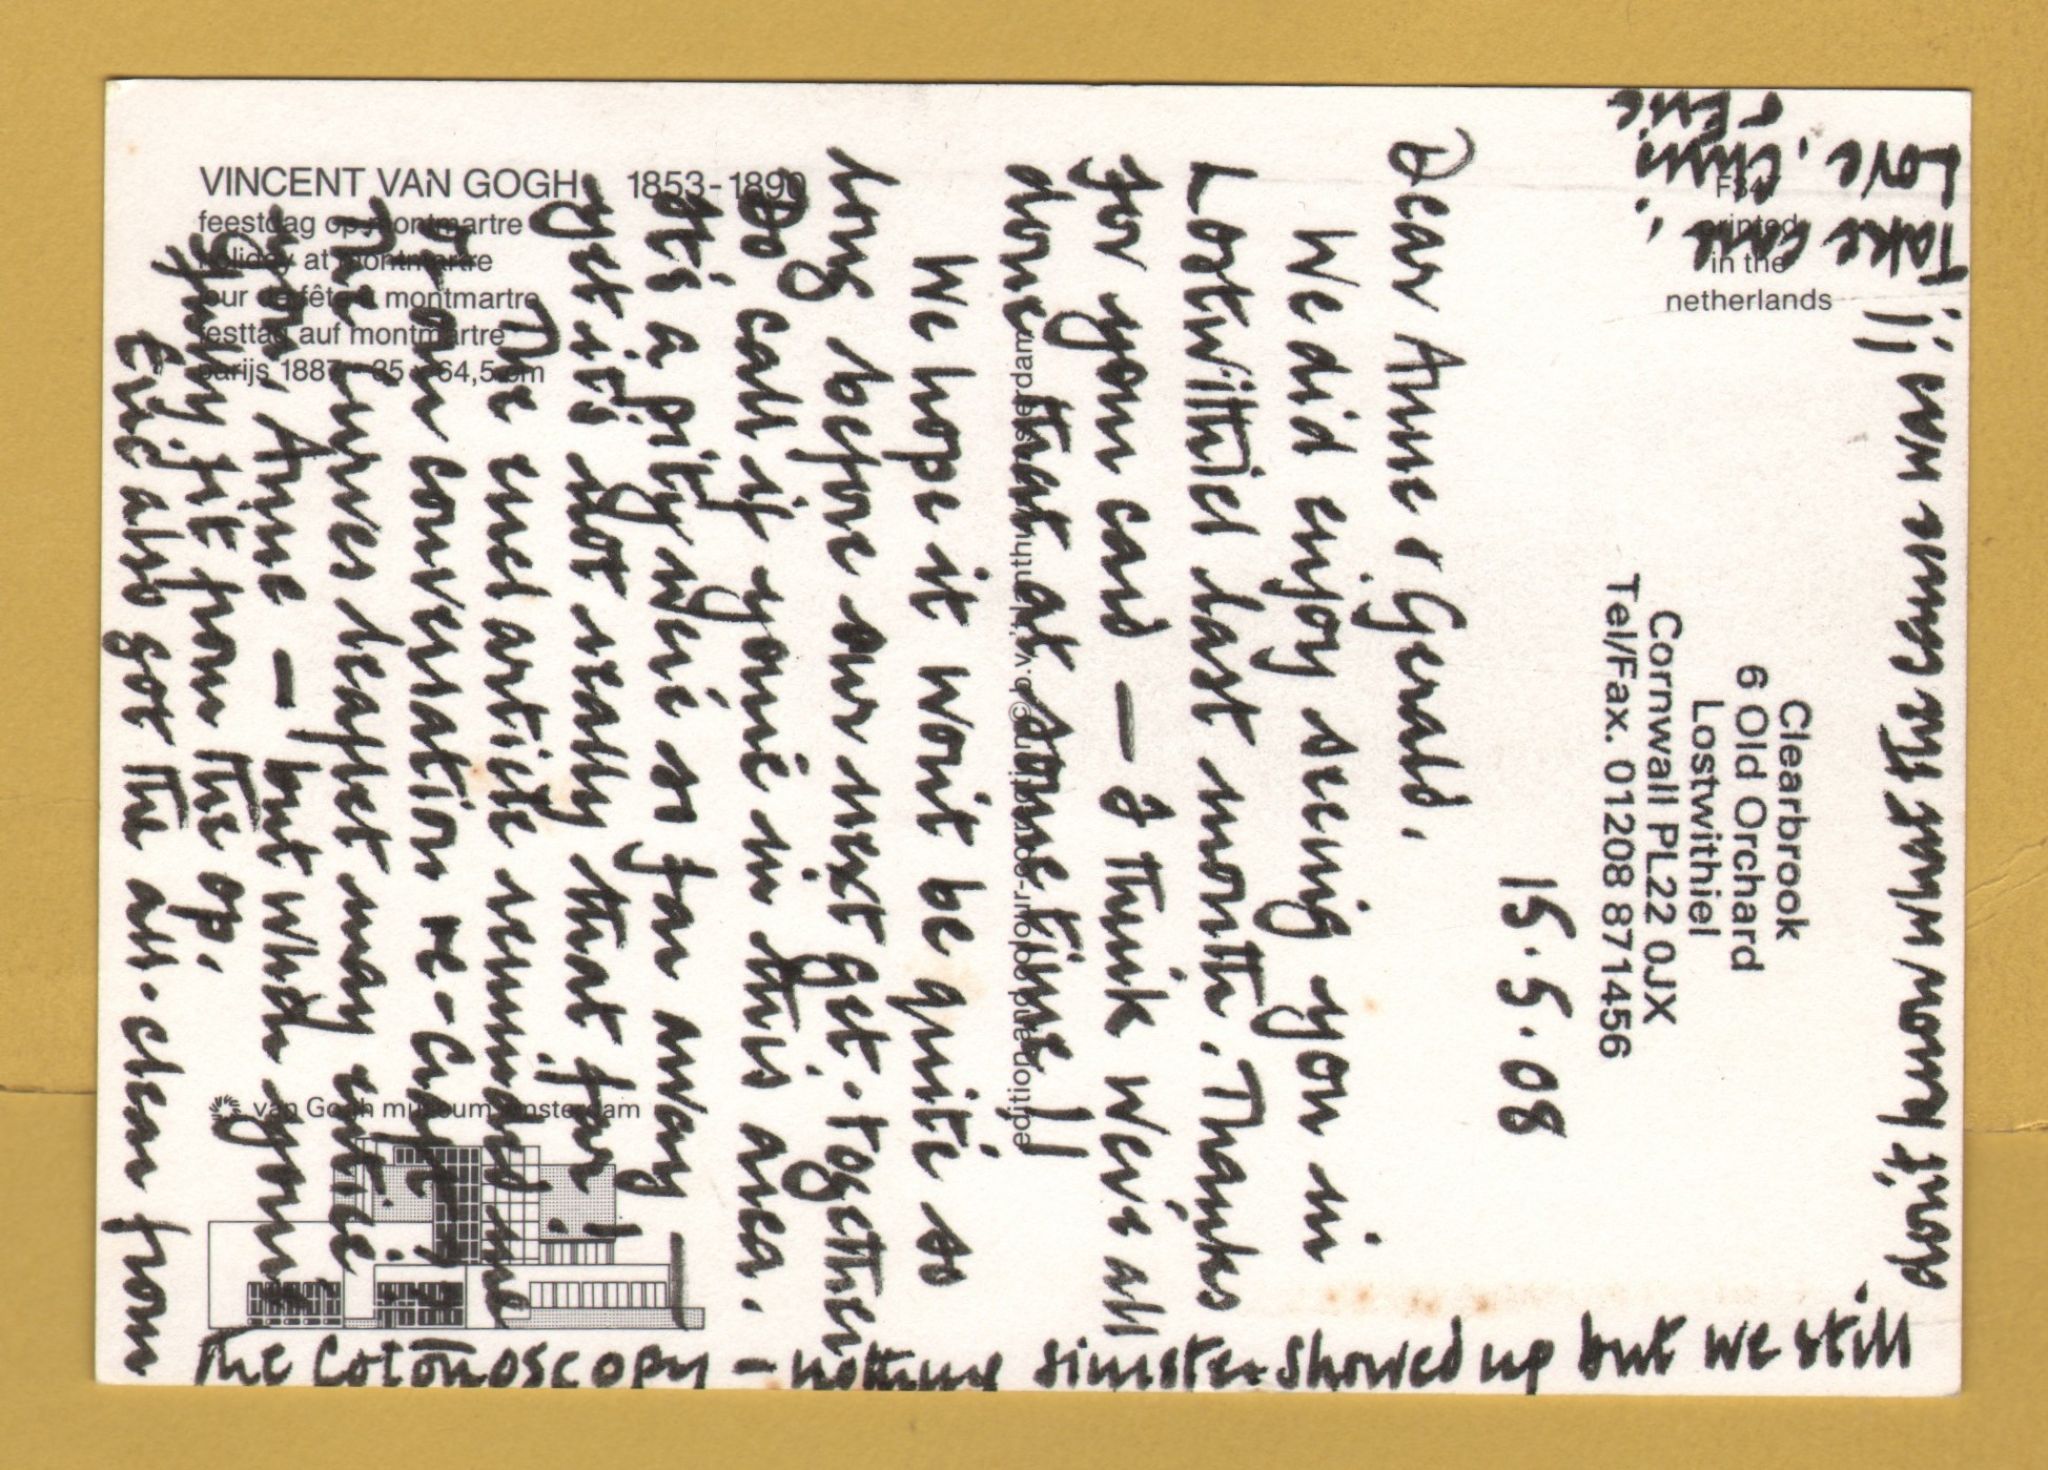 Clearbrook
6 Old Orchard
Lostwithiel
Cornwall PL22 0JX
Tel/Fax. 01208 871456
15.5.08
Dear Anne & Gerald,
We did enjoy seeing you in
Lostwithiel last month. Thanks
for your card — I think we've all
done that at some time!!
We hope it won't be quite so
long before our next get-together
Do call if you're in this area.
It's a pity we're so far away —
yet it's not really that far!
The encl article reminds me
of our conversation re-
The Curves leaflet may entice
you, Anne — but when you're
fully fit from the op.
Eric also got the all-clear from
the colonoscopy — nothing sinister showed up but we still
don't know what the cause was!!
Take care,
Love, Chris
& Eric
VINCENT VAN GOGH 1853-1890
feestdag op montmartre
holiday at montmartre
jour de fête à montmartre
festtag auf montmartre
parijs 1887 - 35 x 64,5 cm
printed
in the
netherlands
van Gogh museum amsterdam